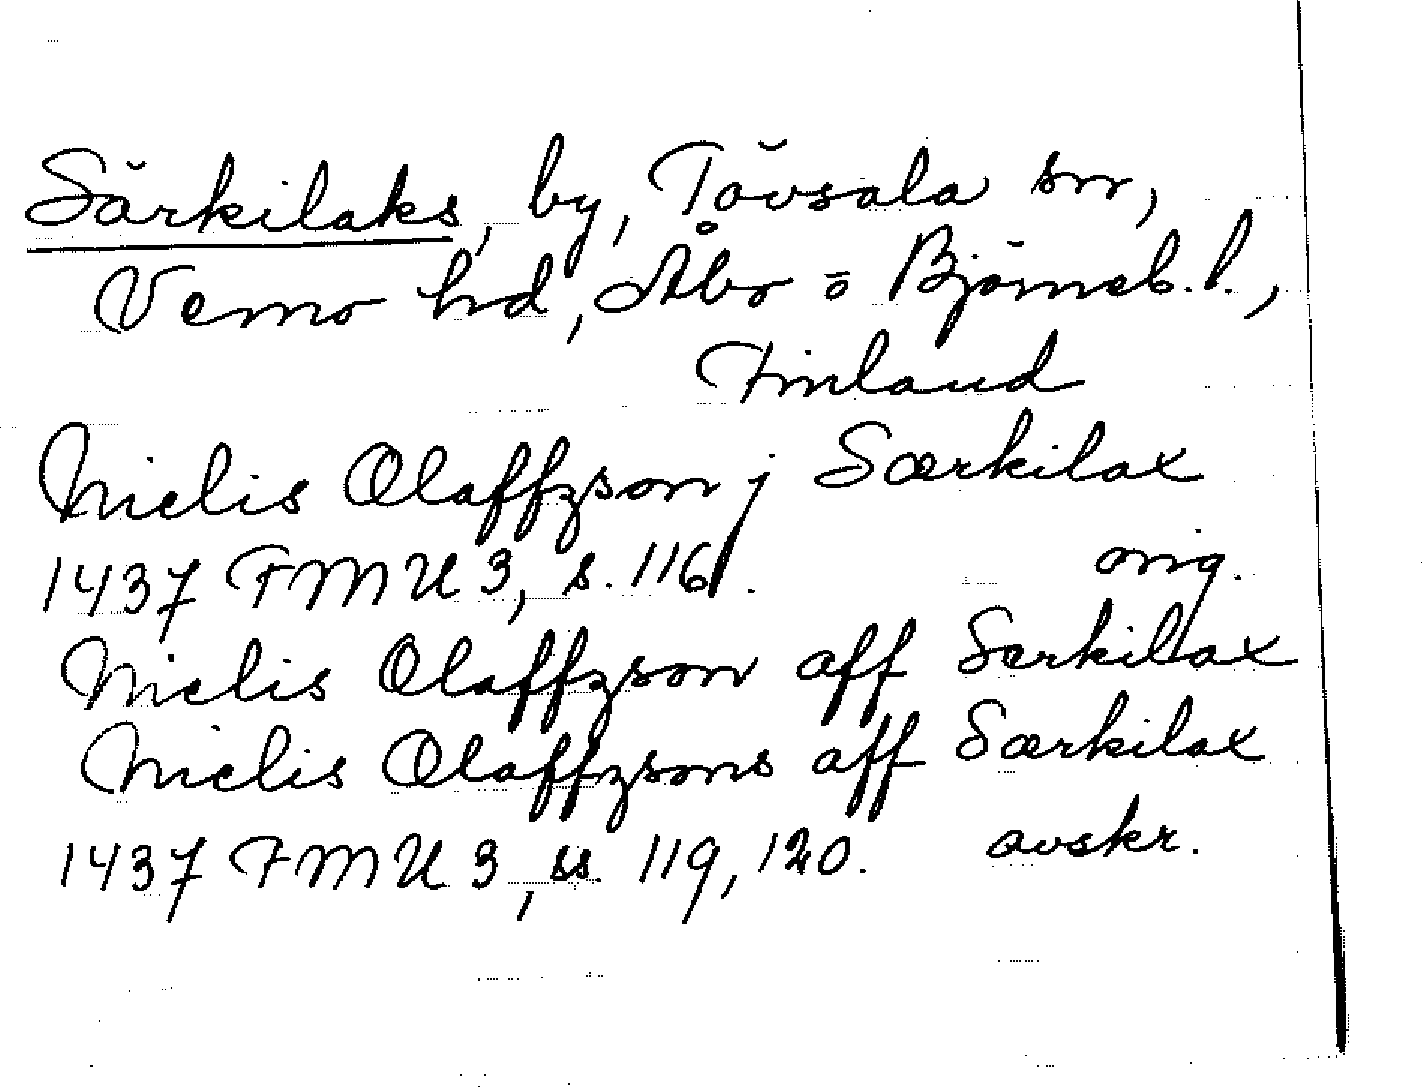 Särkilaks, by, Tövsala sn,
Vemo hd, Åbo o Björneb. l.,
Finland
Nielis Olaffzson j Særkilax
1437 FMU 3, s. 116. orig.
Nielis Olaffzson aff Serkilax
Nielis Olaffzsons aff Særkilax
1437 FMU 3, ss. 119, 120. avskr.